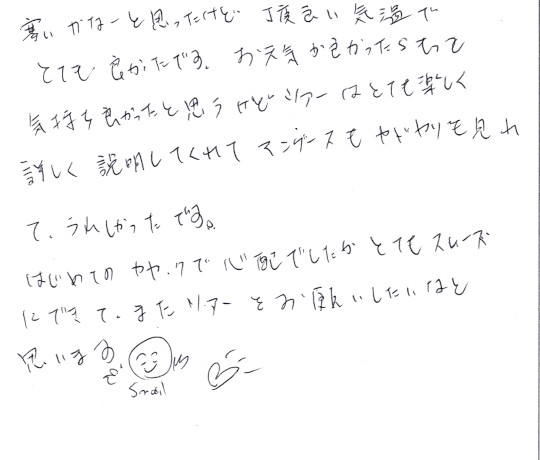 寒いかなーと思ったけど 丁度良い気温で
とても良かったです。お天気が良かったらもっと
気持ち良かったと思うけどツアーはとても楽しく
詳しく説明してくれてマングースもヤドカリも見れ
て、うれしかったです。
はじめてのカヤックで心配でしたがとてもスムーズ
にできて、またツアーをお願いしたいなと
思います
Smail